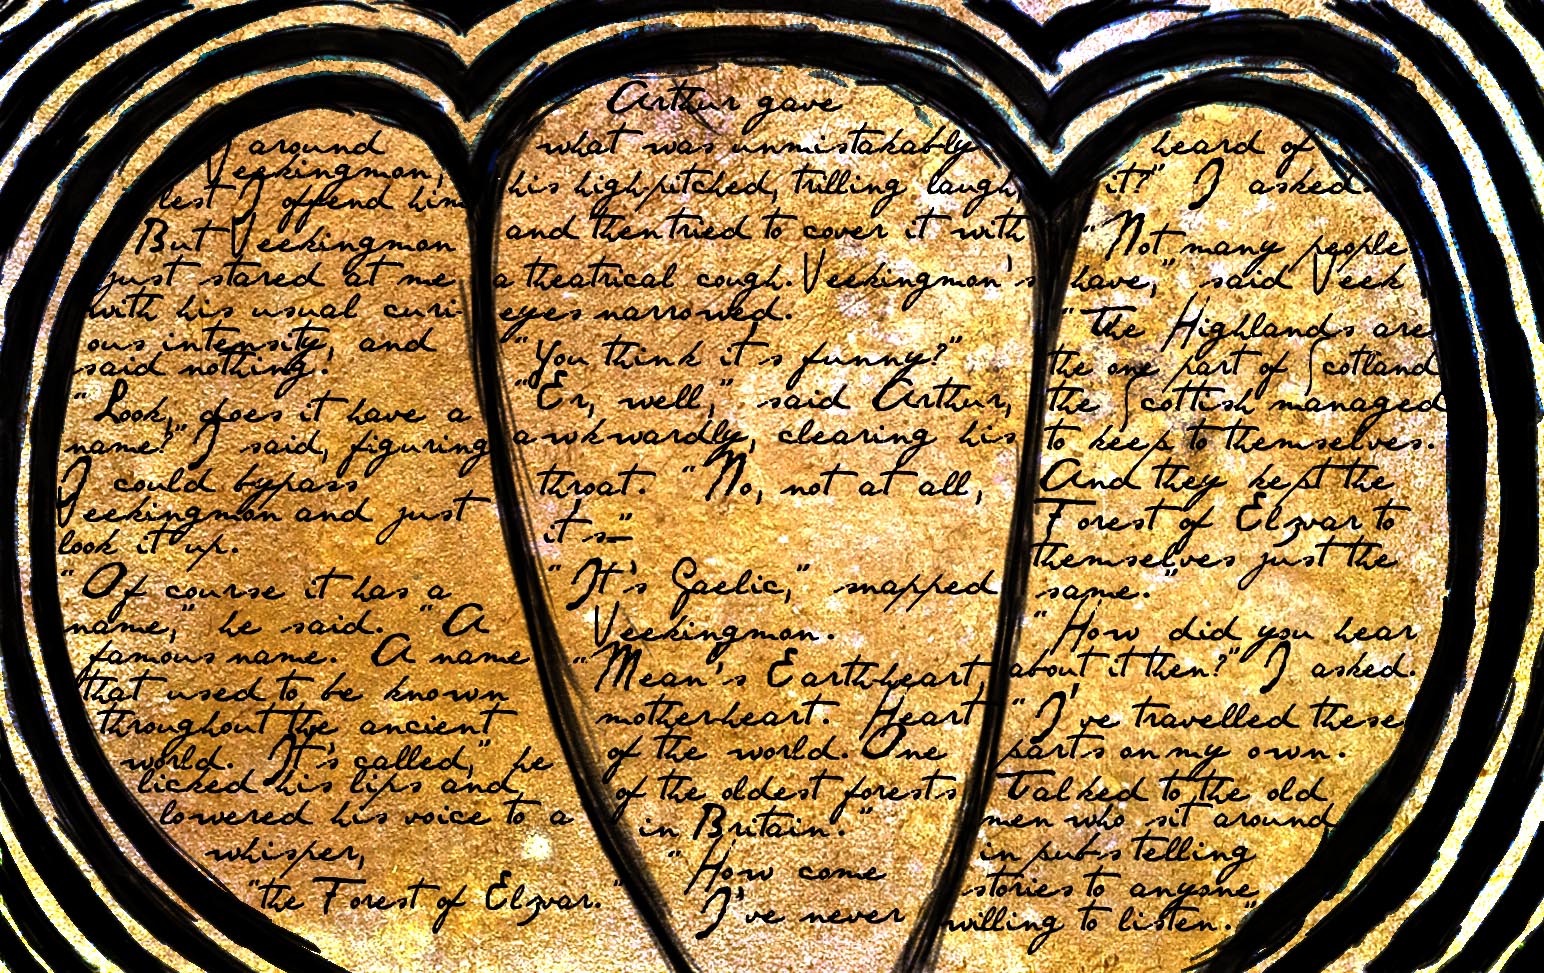 around
Veekingmon,
lest I offend him
But Veekingmon
just stared at me
with his usual curi-
ous intensity, and
said nothing.
"Look, does it have a
name?" I said, figuring
I could bypass
Veekingmon and just
look it up.
"Of course it has a
name," he said. "A
famous name. A name
that used to be known
throughout the ancient
world. It's called," he
licked his lips and
lowered his voice to a
whisper,
"the Forest of Elzvar."
Arthur gave
what was unmistakably
his high-pitched, trilling laugh,
and then tried to cover it with
a theatrical cough. Veekingmon's
eyes narrowed.
"You think it's funny?"
"Er, well," said Arthur,
awkwardly, clearing his
throat. "No, not at all,
it's—"
"It's Gaelic," snapped
Veekingmon.
"Mean's Earth-heart,
mother-heart. Heart
of the world. One
of the oldest forests
in Britain."
"How come
I've never
heard of
it?" I asked.
"Not many people
have," said Veek
"The Highlands are
the one part of Scotland
the Scottish managed
to keep to themselves.
And they kept the
Forest of Elzvar to
themselves just the
same."
"How did you hear
about it then?" I asked.
"I've travelled these
parts on my own.
Talked to the old
men who sit around
in pubs telling
stories to anyone
willing to listen."